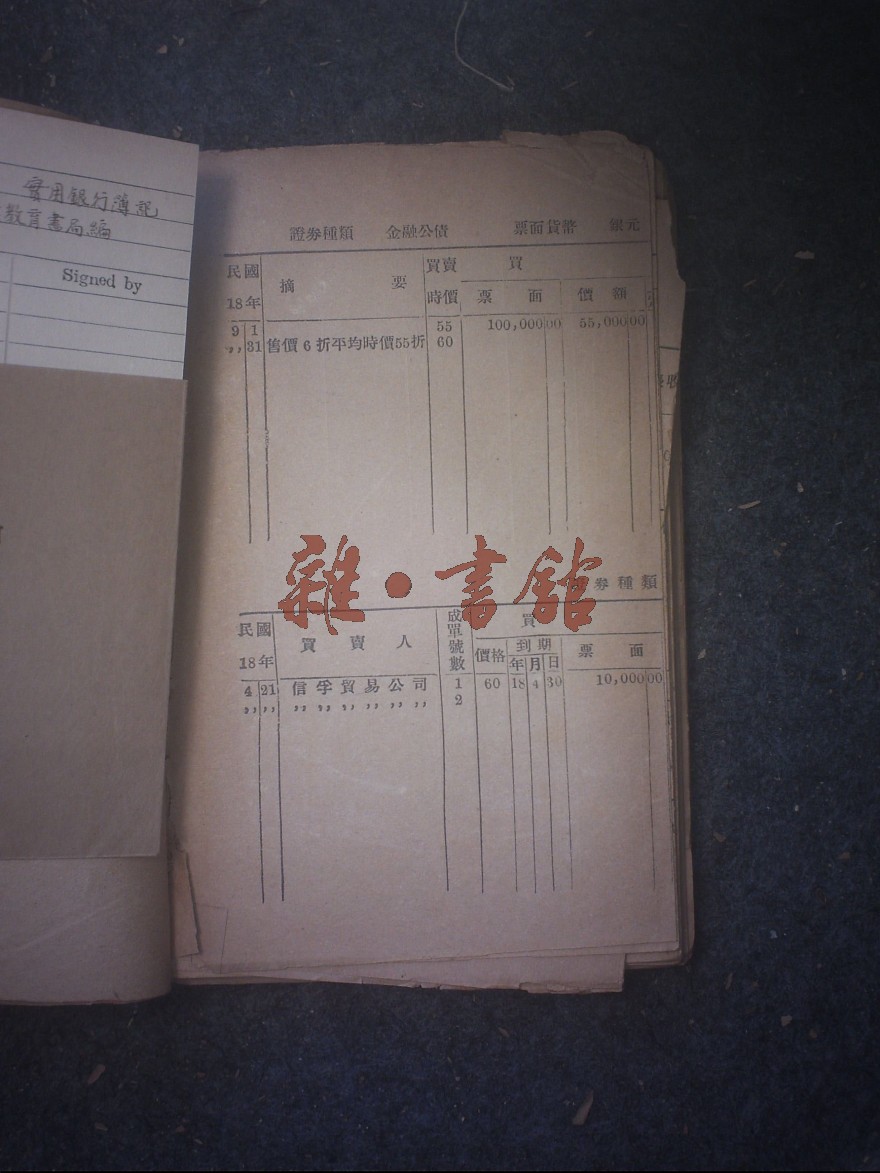 實用銀行簿記
教育書局編
Signed by
證券種類 金融公債 票面貨幣 銀元
民國 18年 摘要 買賣時價 買 票面 價額
9 1 55 100,000 00 55,000 00
,, 31 售價6折平均時價55折 60
雜·書館
券種類
民國 18年 買賣人 成單號數 買 價格 到期 年 月 日 票面
4 21 信孚貿易公司 1 60 18 4 30 10,000 00
,, ,, ,, ,, ,, ,, ,, ,, 2